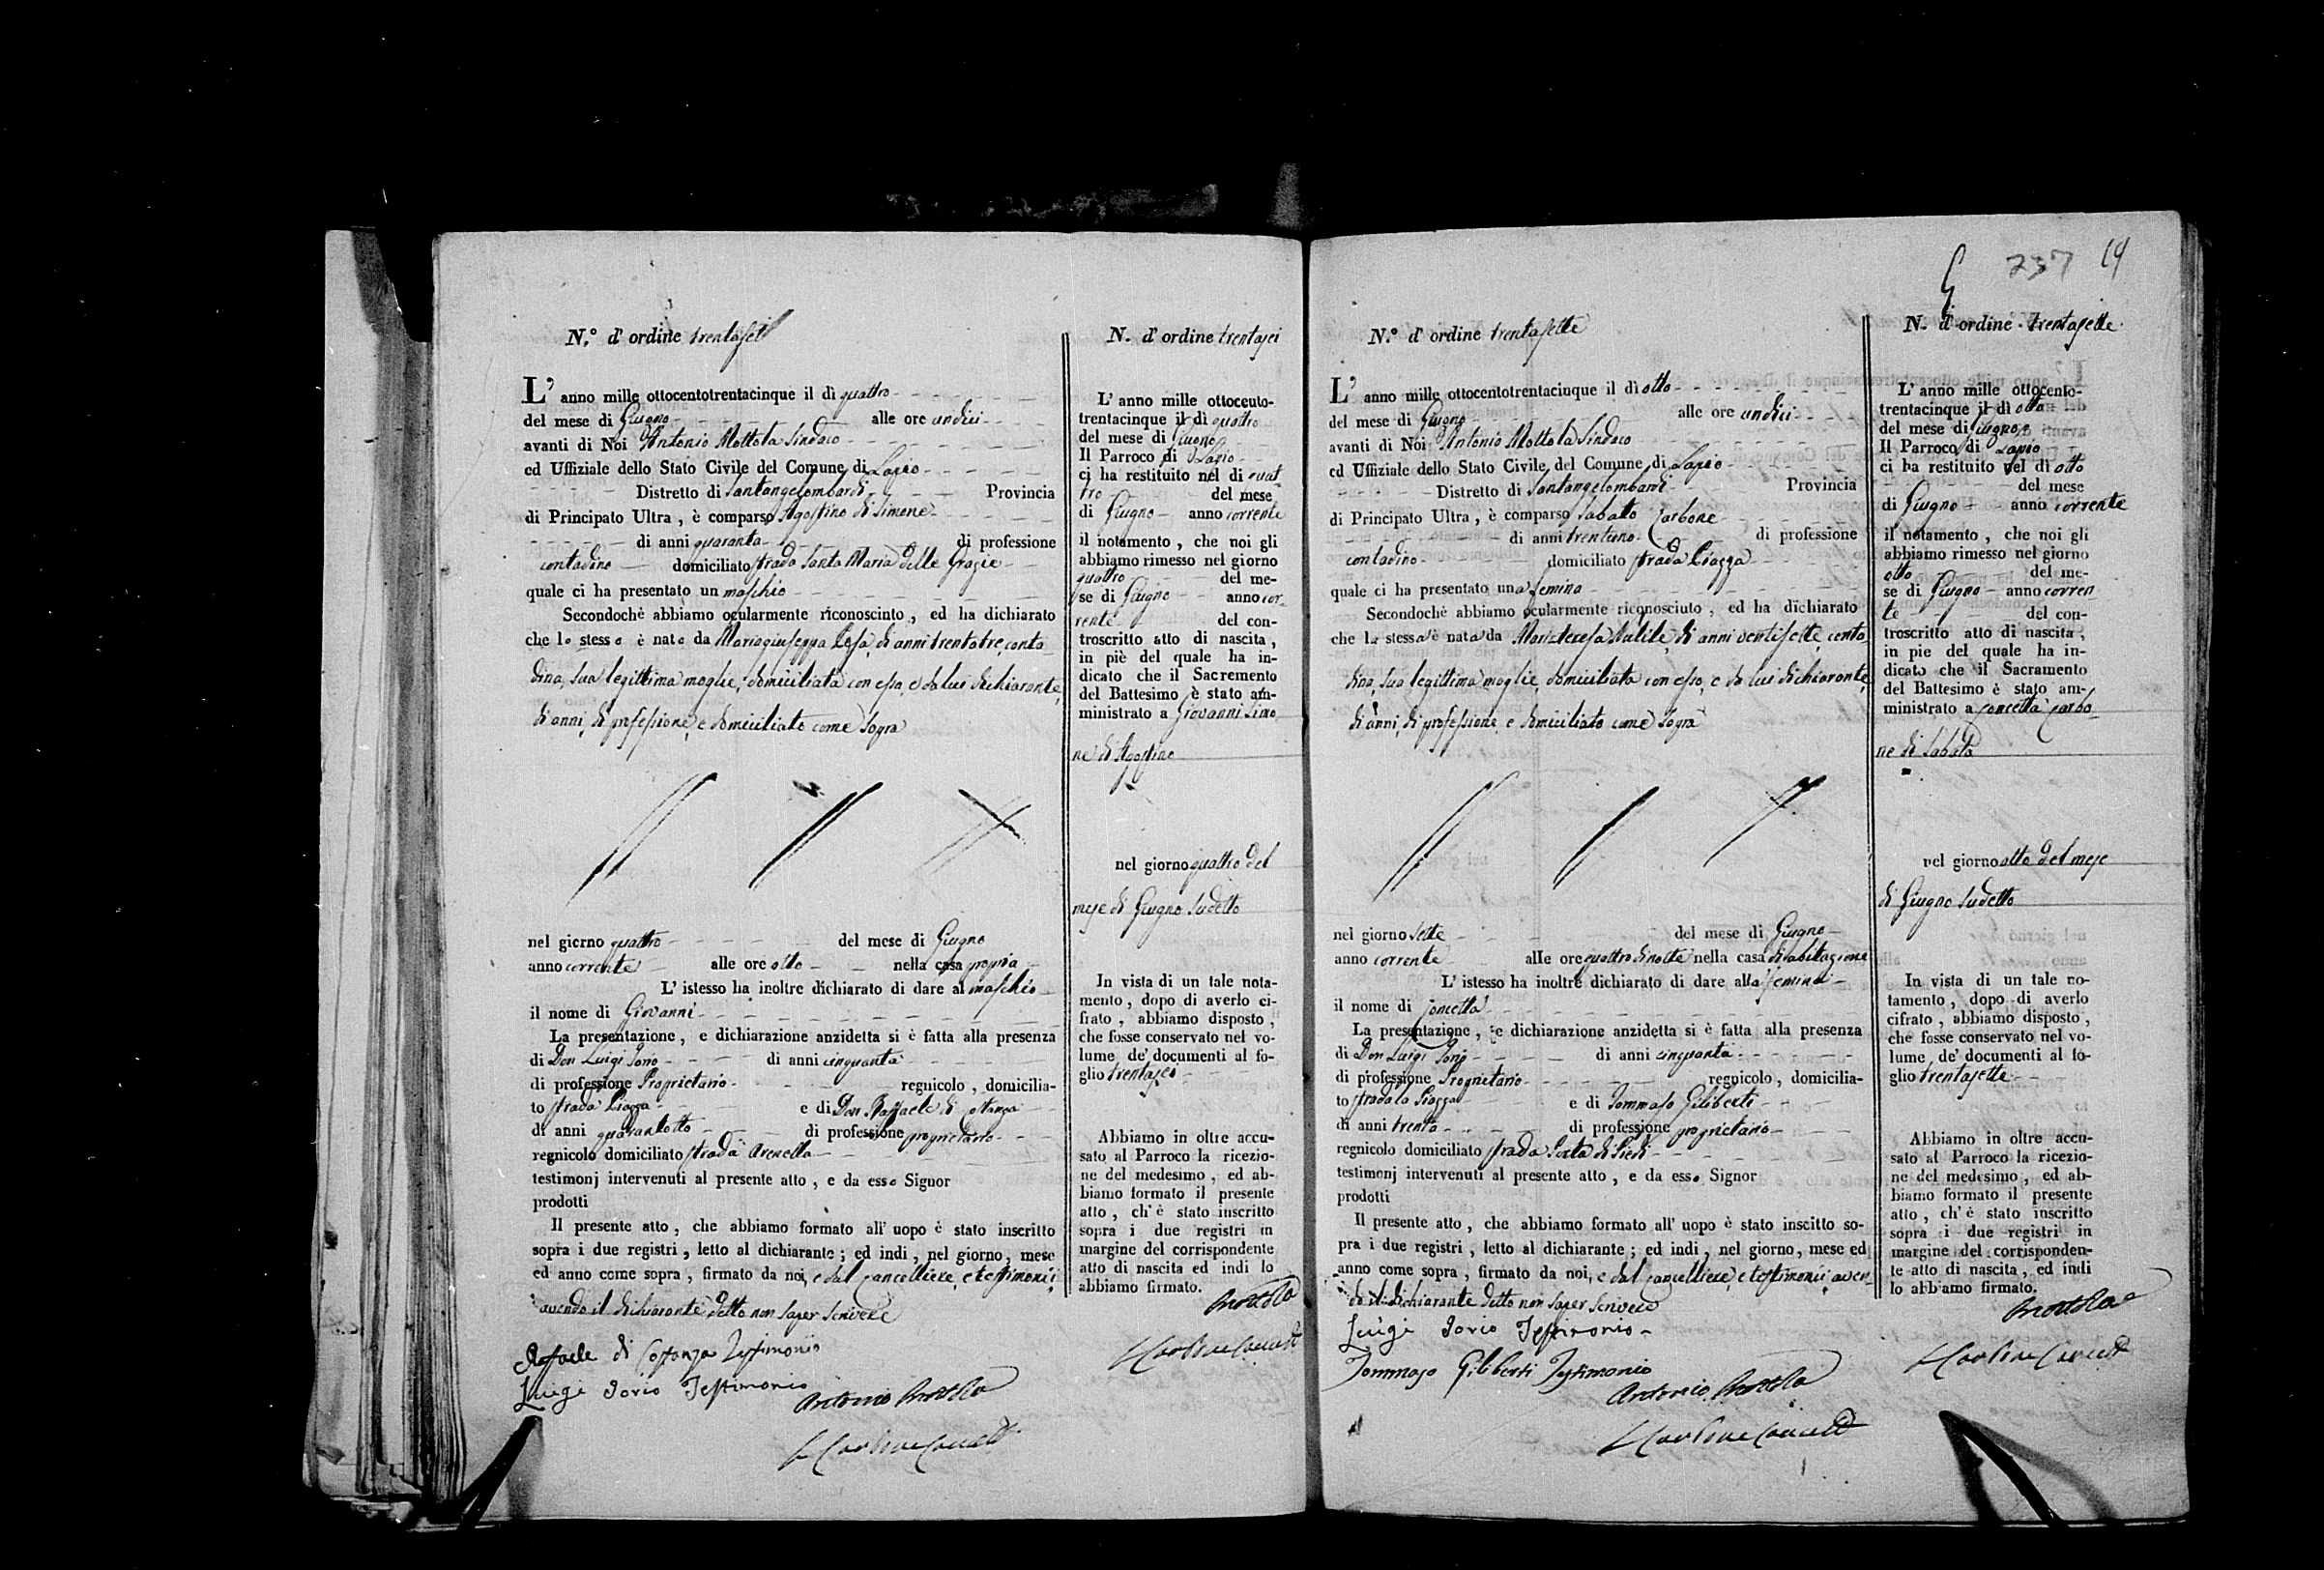 N.° d'ordine trentasei
L' anno mille ottocentotrentacinque il dì quattro
del mese di Giugno alle ore undici
avanti di Noi Antonio Mottola Sindaco
ed Uffiziale dello Stato Civile del Comune di Lapio
Distretto di Santangelombardi Provincia
di Principato Ultra, è comparso Agostino di Simone
di anni quaranta di professione
contadino domiciliato strada Santa Maria delle Grazie
quale ci ha presentato un maschio
Secondochè abbiamo ocularmente riconosciuto, ed ha dichiarato
che lo stesso è nato da Mariagiuseppa di anni trentatre, conta
dina, sua legittima moglie, domiciliata con esso, e da lui dichiarante,
di anni, di professione, e domiciliato come sopra
nel giorno quattro del mese di Giugno
anno corrente alle ore otto nella casa propria
L' istesso ha inoltre dichiarato di dare al maschio
il nome di Giovanni
La presentazione, e dichiarazione anzidetta si è fatta alla presenza
di Don Luigi Iorio di anni cinquanta
di professione Proprietario regnicolo, domicilia-
to strada Piazza e di Don Raffaele di Costanza
di anni quarantotto di professione proprietario
regnicolo domiciliato strada Arenella
testimonj intervenuti al presente atto, e da esso Signor
prodotti
Il presente atto, che abbiamo formato all' uopo è stato inscritto
sopra i due registri, letto al dichiarante; ed indi, nel giorno, mese
ed anno come sopra, firmato da noi, e dal cancelliere, e testimonii
avendo il dichiarante detto non saper scrivere
Raffaele di Costanza Testimonio
Luigi Iorio Testimonio
Antonio Mottola
N. d'ordine trentasei
L' anno mille ottocento-
trentacinque il dì quattro
del mese di Giugno
Il Parroco di Lapio
ci ha restituito nel dì quat
tro del mese
di Giugno anno corrente
il notamento, che noi gli
abbiamo rimesso nel giorno
quattro del me-
se di Giugno anno cor-
rente del con-
troscritto atto di nascita,
in piè del quale ha in-
dicato che il Sacremento
del Battesimo è stato am-
ministrato a Giovanni Simo
ne di Agostino
nel giorno quattro del
mese di Giugno sudetto
In vista di un tale nota-
mento, dopo di averlo ci-
frato, abbiamo disposto,
che fosse conservato nel vo-
lume de' documenti al fo-
glio trentasei
Abbiamo in oltre accu-
sato al Parroco la ricezio-
ne del medesimo, ed ab-
biamo formato il presente
atto, ch' è stato inscritto
sopra i due registri in
margine del corrispondente
atto di nascita ed indi lo
abbiamo firmato.
Mottola
737 19
N.° d'ordine trentasette
L' anno mille ottocentotrentacinque il dì otto
del mese di Giugno alle ore undici
avanti di Noi Antonio Mottola Sindaco
ed Uffiziale dello Stato Civile del Comune di Lapio
Distretto di Santangelombardi Provincia
di Principato Ultra, è comparso Sabato Carbone
di anni trentuno di professione
contadino domiciliato strada Piazza
quale ci ha presentato una femina
Secondochè abbiamo ocularmente riconosciuto, ed ha dichiarato
che la stessa è nata da Mariateresa di anni ventisette, conta
dina, sua legittima moglie, domiciliata con esso, e da lui dichiarante,
di anni, di professione e domiciliato come sopra
nel giorno sette del mese di Giugno
anno corrente alle ore quattro di notte nella casa di abitazione
L' istesso ha inoltre dichiarato di dare alla femina
il nome di Concetta
La presentazione, e dichiarazione anzidetta si è fatta alla presenza
di Don Luigi Iorio di anni cinquanta
di professione Proprietario regnicolo, domicilia-
to strada la Piazza e di Tommaso Giliberti
di anni trenta di professione proprietario
regnicolo domiciliato strada
testimonj intervenuti al presente atto, e da esso Signor
prodotti
Il presente atto, che abbiamo formato all' uopo è stato inscitto so-
pra i due registri, letto al dichiarante; ed indi, nel giorno, mese ed
anno come sopra, firmato da noi, e dal cancelliere, e testimonii aven-
do il dichiarante detto non saper scrivere
Luigi Iorio Testimonio
Tommaso Giliberti Testimonio
Antonio Mottola
N. d'ordine trentasette
L' anno mille ottocento-
trentacinque il dì otto
del mese di Giugno
Il Parroco di Lapio
ci ha restituito nel dì otto
del mese
di Giugno anno corrente
il notamento, che noi gli
abbiamo rimesso nel giorno
otto del me-
se di Giugno anno corren
te del con-
troscritto atto di nascita,
in pie del quale ha in-
dicato che il Sacramento
del Battesimo è stato am-
ministrato a Concetta Carbo
ne di Sabato
nel giorno otto del mese
di Giugno sudetto
In vista di un tale no-
tamento, dopo di averlo
cifrato, abbiamo disposto,
che fosse conservato nel vo-
lume de' documenti al fo-
glio trentasette
Abbiamo in oltre accu-
sato al Parroco la ricezio-
ne del medesimo, ed ab-
biamo formato il presente
atto, ch' è stato inscritto
sopra i due registri in
margine del corrisponden-
te atto di nascita, ed indi
lo abbiamo firmato.
Mottola